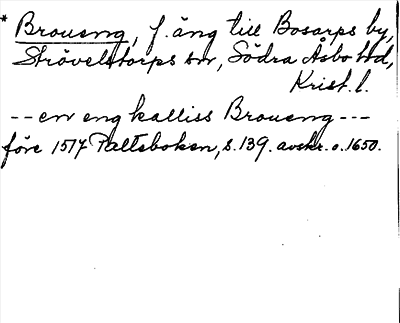 * Broueng, f. äng till Bosarps by,
Strövelstorps sn, Södra Åsbo hd,
Krist. l.
-- en eng kalliss Broueng ---
före 1517 Palteboken, s. 139. avskr. o. 1650.